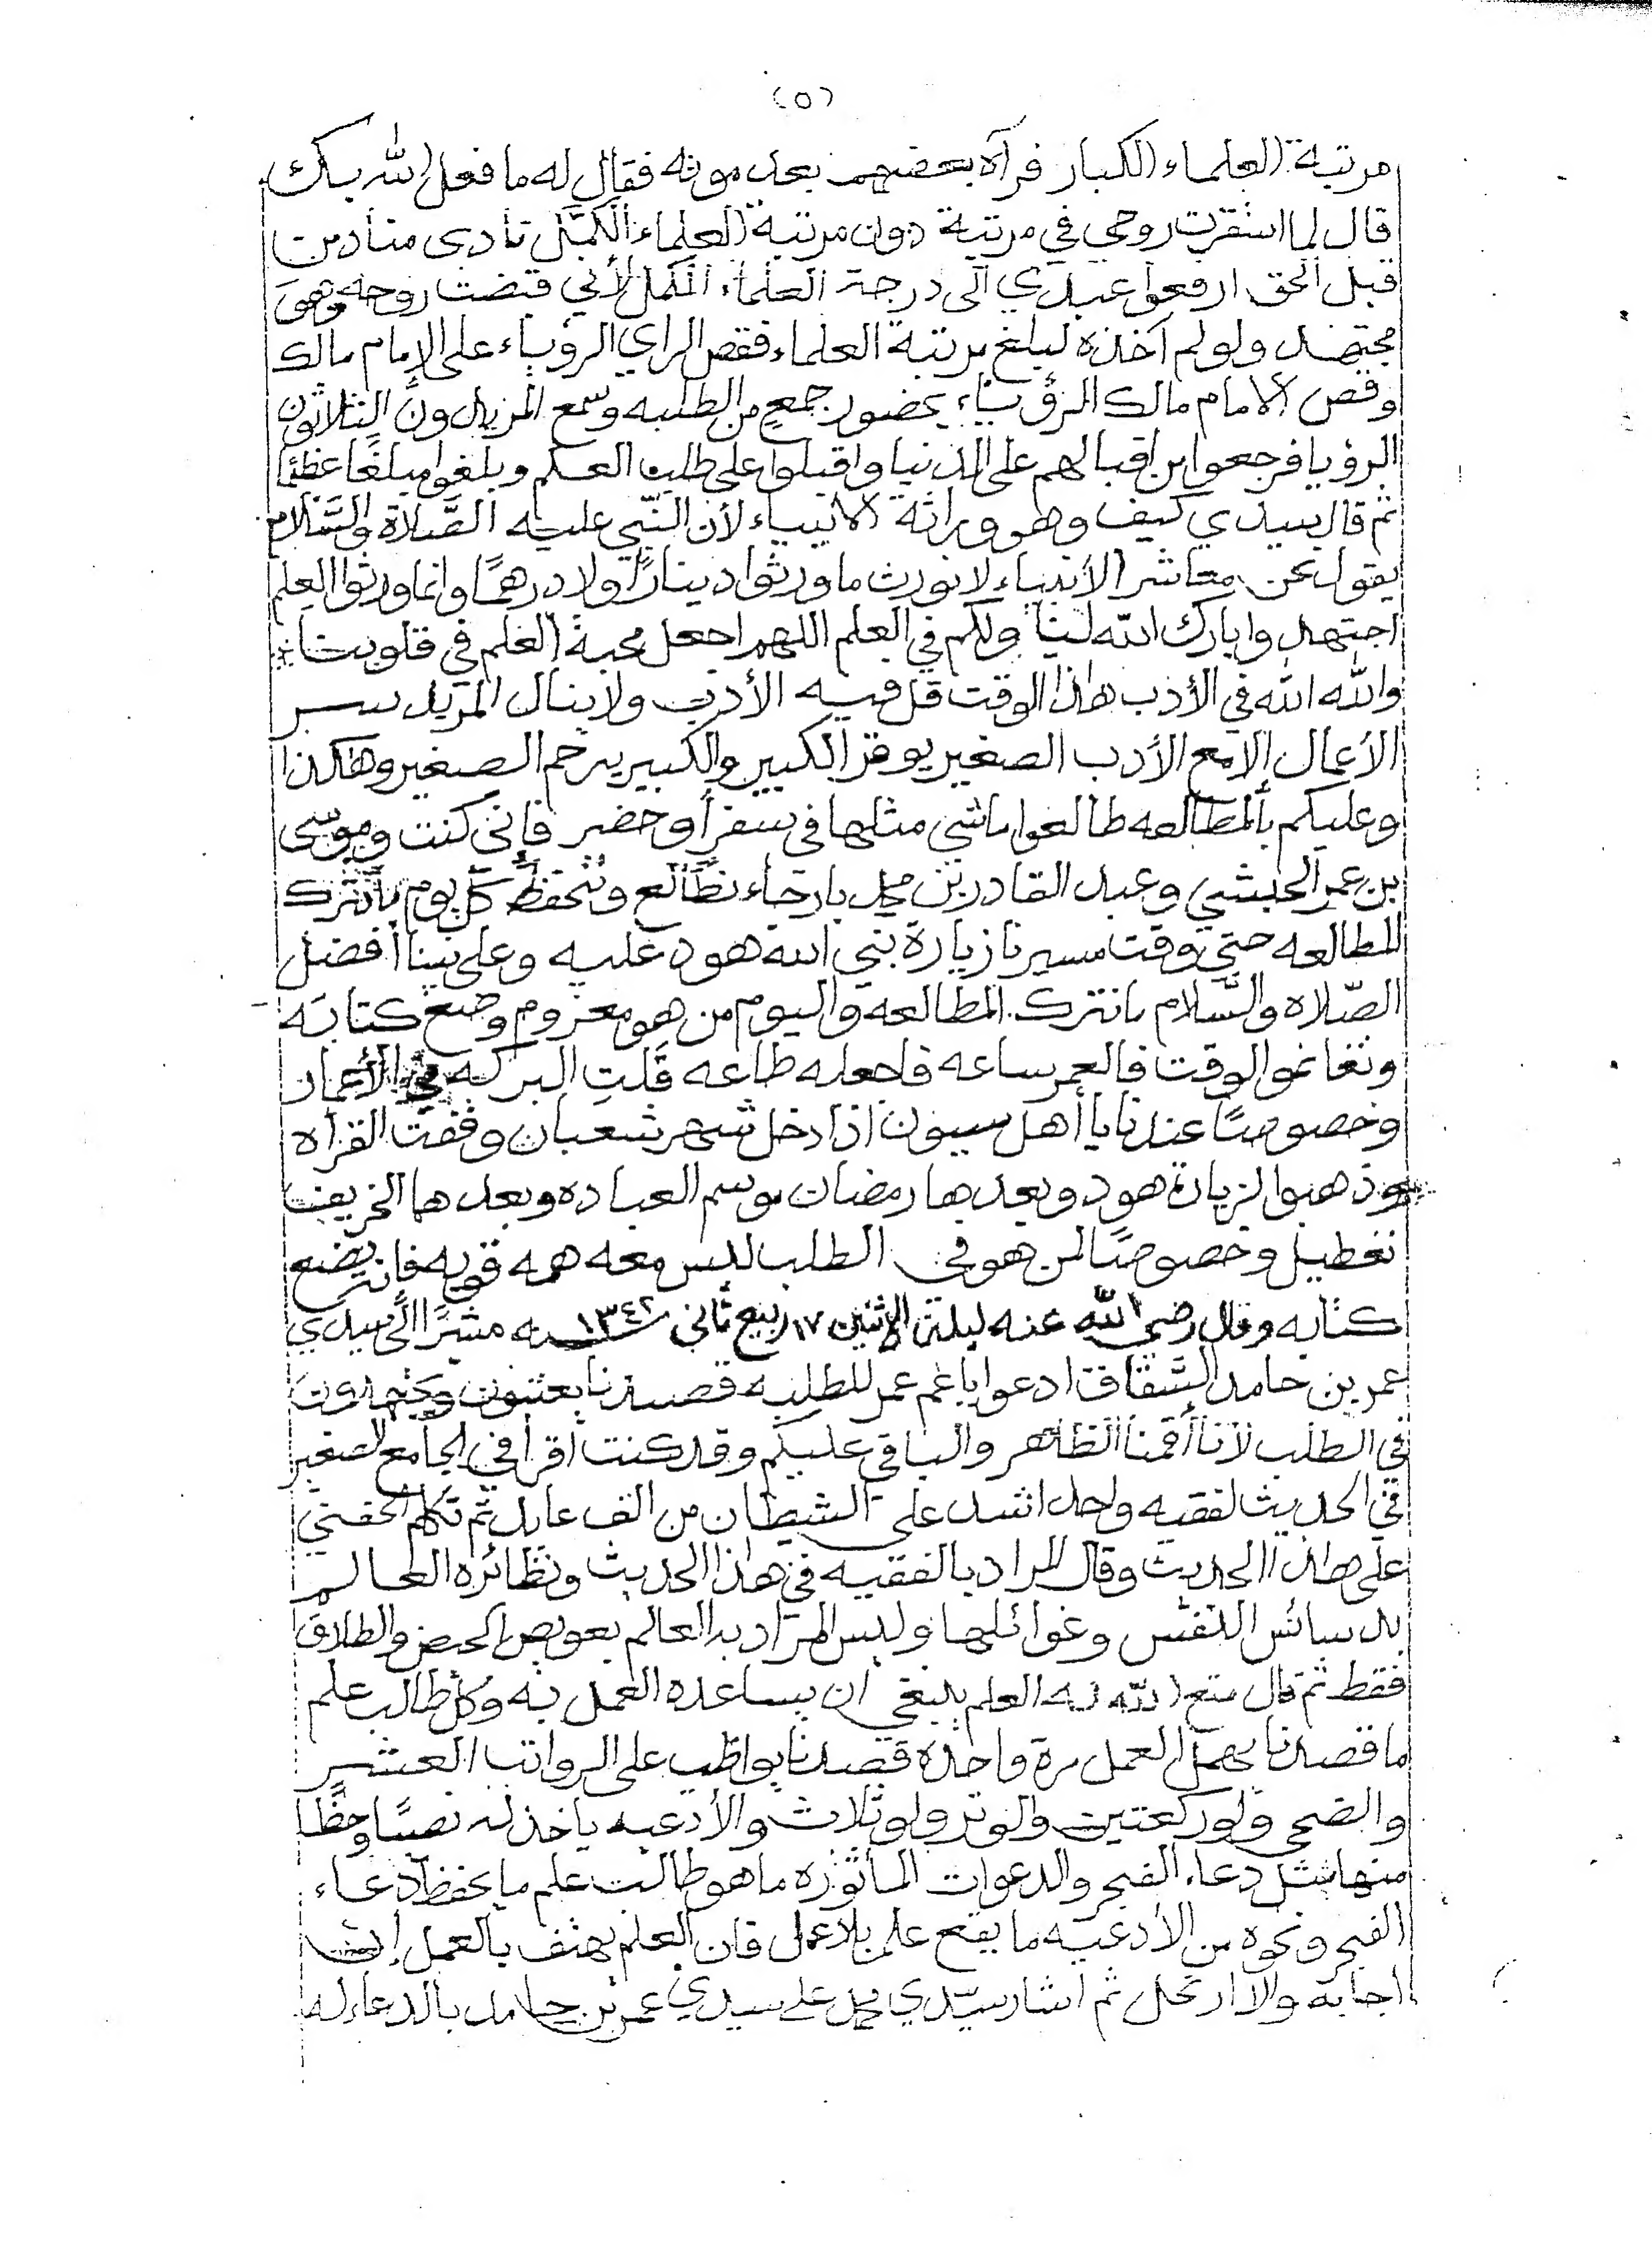 (٥)
مرتبة العلماء الكبار فرآه بعضهم بعد موته فقال له ما فعل الله بك
قال لما استقرت روحي في مرتبة دون مرتبة العلماء الكُمَّل نادى مناد من
قبل الحق ارفعوا عبدي الى درجة العلماء الكمل لأني قبضت روحه وهو
مجتهد ولو لم آخذه ليبلغ مرتبة العلماء فقص الراي الرؤياء على الإمام مالك
وقص الامام مالك الرؤياء بحضور جمعٍ من الطلبه وسمع المريدون الثلاثون
الرؤيا فرجعوا من اقبالهم على الدنيا واقبلوا على طلب العلم وبلغوا مبلغًا عظيمًا
ثم قال سيدي كيف وهو وراثة الانبياء لأن النبي عليه الصَّلاة والسَّلام
يقول نحن معاشر الأنبياء لا نورث ما ورثوا دينارًا ولا درهمًا وانما ورثوا العلم
اجتهدوا بارك الله لنا ولكم في العلم اللهم اجعل محبة العلم في قلوبنا
والله الله في الأدب هاذا الوقت قل فيه الأدب ولا ينال المريد سر
الأعمال إلا مع الأدب الصغير يوقر الكبير والكبير يرحم الصغير وهاكذا
وعليكم بالمطالعه طالعوا ماشي مثلها في سفر أو حضر فاني كنت وموسى
بن عمر الحبشي وعبد القادر بن محمد بارجاء نطالع ونتحفظ كل يوم ما نترك
المطالعه حتى وقت مسيرنا زيارة نبي الله هود عليه وعلى نبينا أفضل
الصّلاه والسَّلام ما نترك المطالعه واليوم من هو محروم وضع كتابَه
وتغانموا الوقت فالعمر ساعه فاجعله طاعه قَلَّتِ البركه في الأعمار
وخصوصًا عندنا يا أهل سيون اذا دخل شهر شعبان وقفت القرأه
وذهبوا لزيارة هود وبعدها رمضان موسم العباده وبعدها الخريف
تعطيل وخصوصًا لمن هو في الطلب ليس معه همه قويه فانه يضع
كتابه وقال رضي الله عنه ليلة الاثنين ١٧ ربيع ثاني سنة ١٣٤٢ه مشيرًا الى سيدي
عمر بن حامد السَّقاف ادعوا يا عم عمر للطلبه قصدنا يعتنون ويجتهدون
في الطلب لأنا أقمنا الظاهر والباقي عليكم وقد كنت اقرأ في الجامع الصغير
في الحديث لفقيه واحد اشد على الشيطان من الف عابد ثم تكلم الحفني
على هاذا الحديث وقال المراد بالفقيه في هاذا الحديث ونظائره العالم
بدسائس النفس وغوائلها وليس المراد به العالم بعويص الحيض والطلاق
فقط ثم قال متع الله به العلم ينبغي ان يساعده العمل به وكل طالب علم
ما قصدنا يهمل العمل مرة واحدة قصدنا يواظب على الرواتب العشر
والضحى ولو ركعتين والوتر ولو ثلاث والأدعيه ياخذ له نصيبًا وحظًّا
منها مثل دعاء الفجر والدعوات المأثوره ما هو طالب علم ما يحفظ دعاء
الفجر ونحوه من الأدعيه ما يقع علم بلا عمل فان العلم يهتف بالعمل إن
اجابه والا ارتحل ثم اشار سيّدي محمد على سيدي عمر بن حامد بالدعاء له